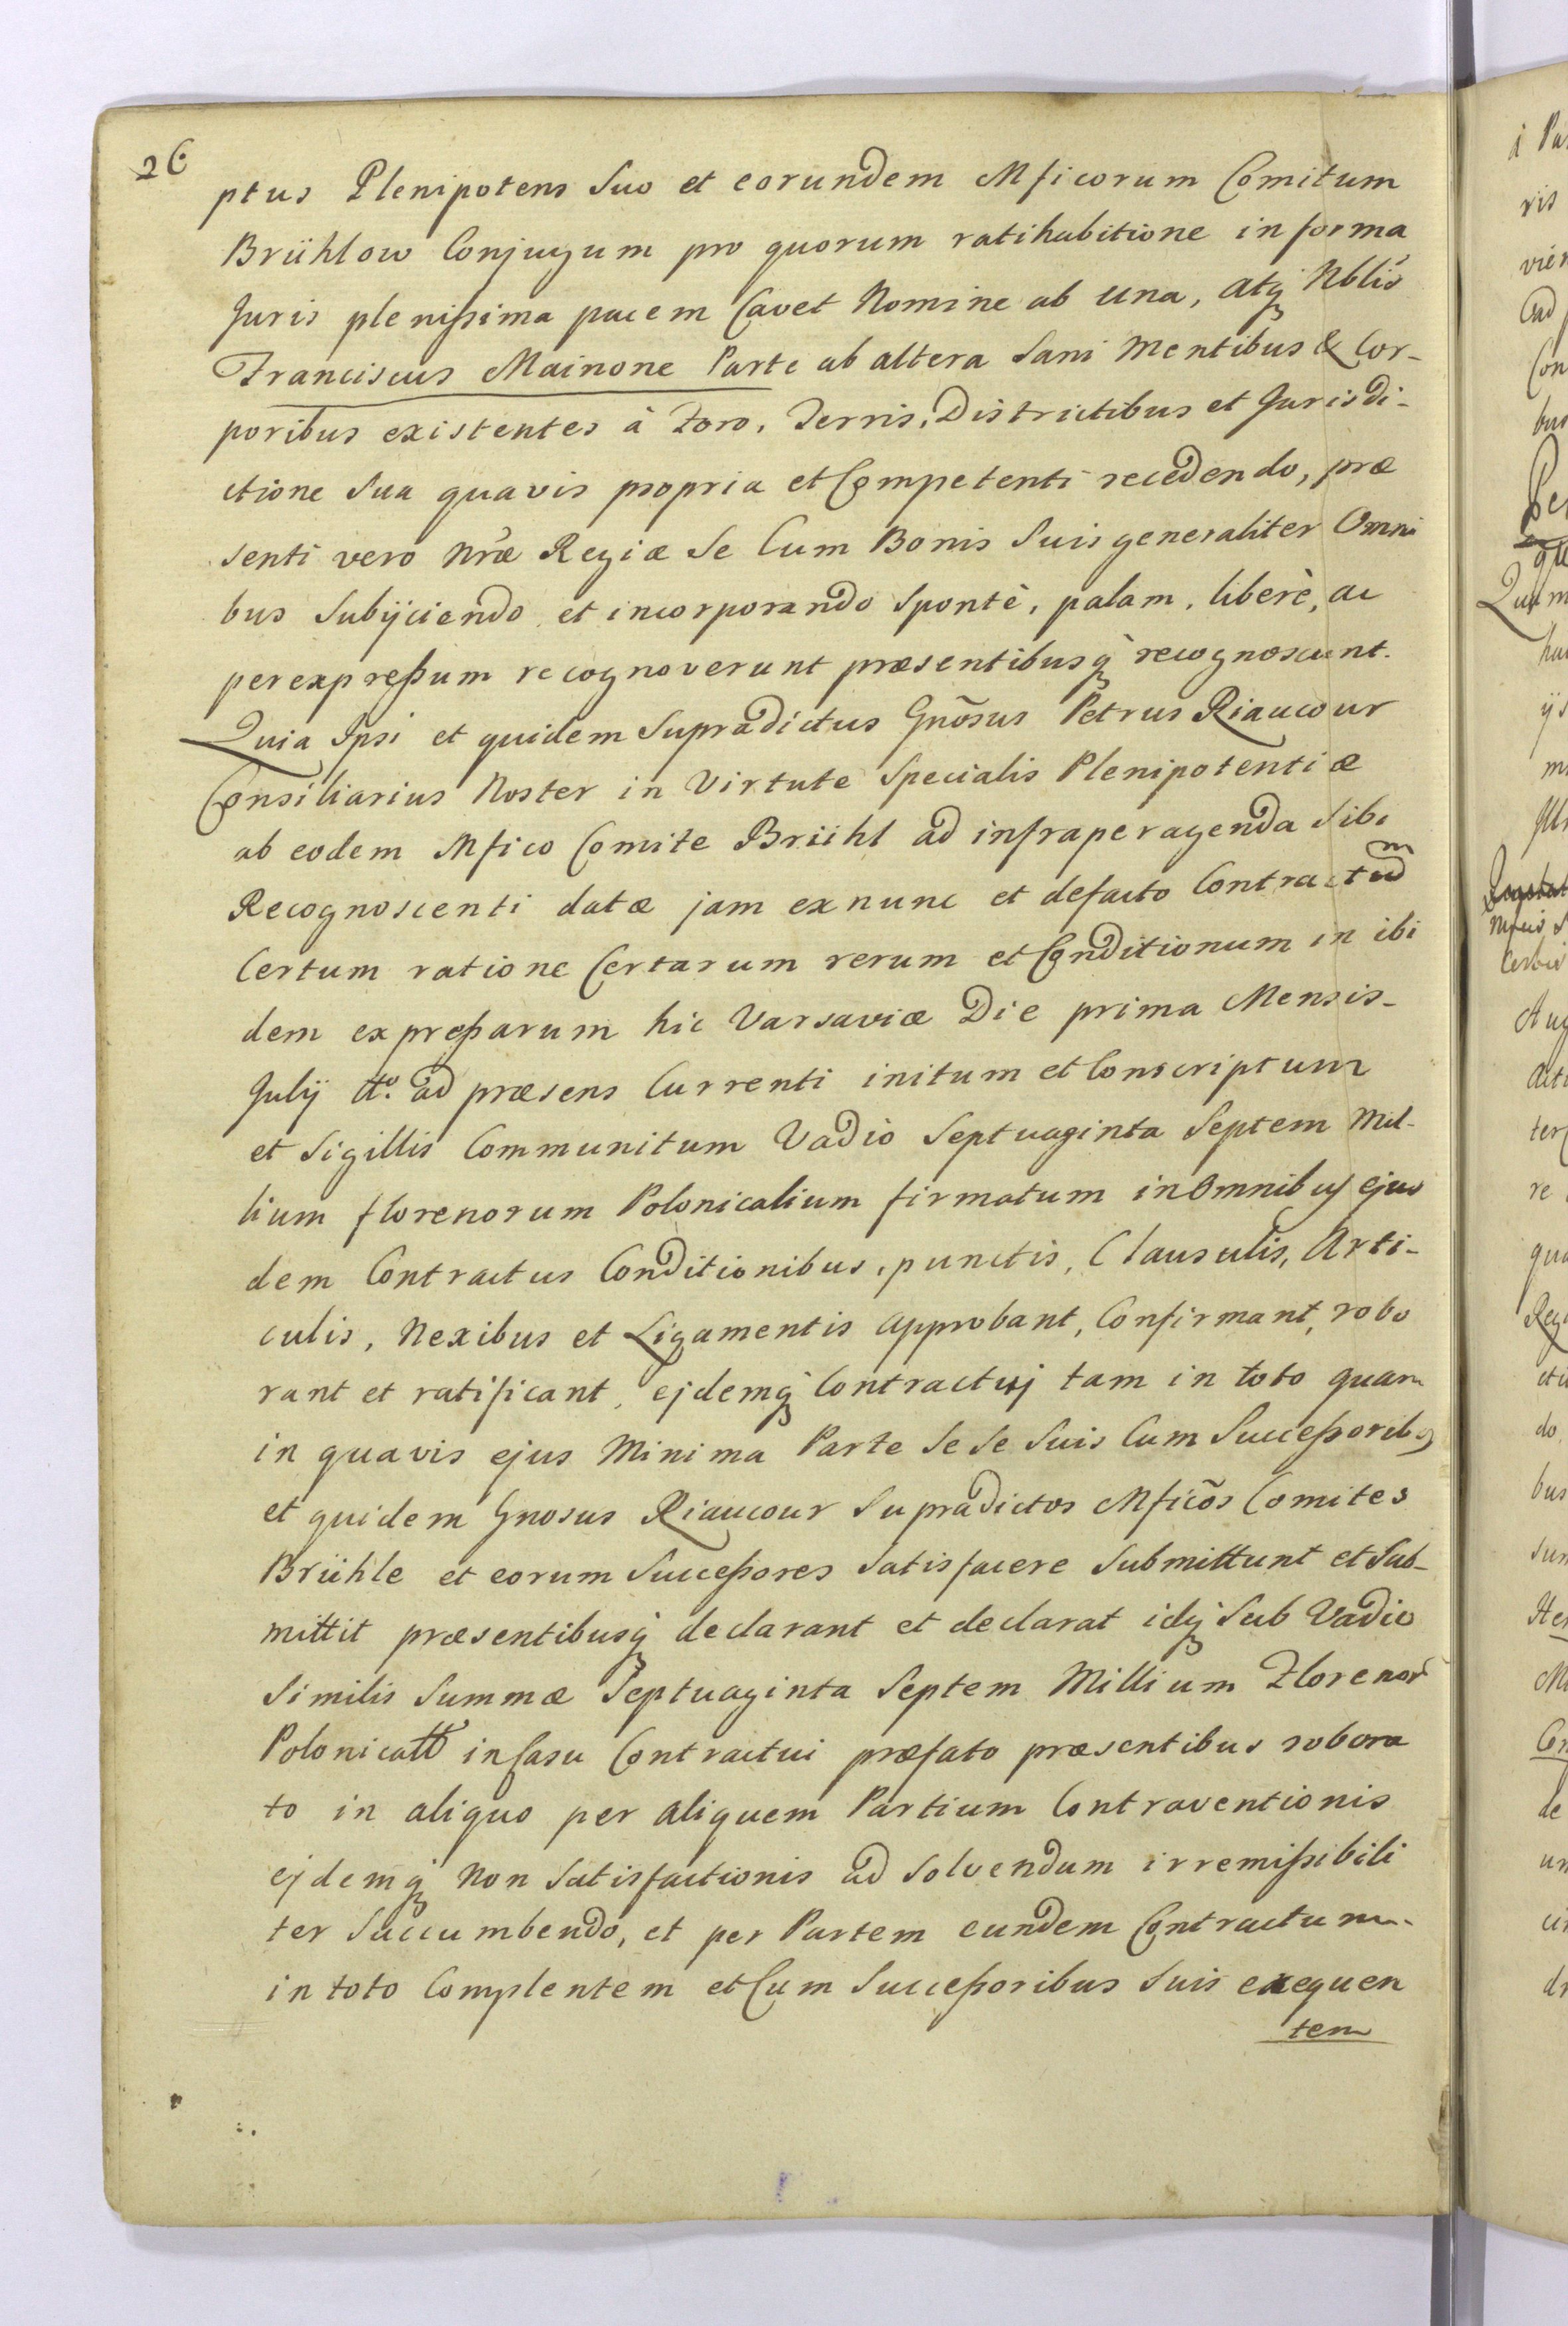 26
ptus Plenipotens Suo et eorundem Mficorum Comitum
Brühlow Conjugum pro quorum ratihabitione in forma
Juris plenißima pacem Cavet Nomine ab una, atq Nblis
Franciscus Mainone Parte ab altera Sani Mentibus & Cor-
poribus existentes à Foro, Terris, Districtibus et Jurisdi-
ctione Sua quavis propria et Competenti recedendo, præ
senti vero Nræ Regiæ Se Cum Bonis Suis generaliter Omni
bus Subijciendo et incorporando Spontè, palam, liberè, ac
per expreßum recognoverunt præsentibusq recognoscunt.
Quia Ipsi et quidem Supradictus Gnõsus Petrus Riaucour
Consiliarius Noster in Virtute Specialis Plenipotentiæ
ab eodem Mfico Comite Brühl ad infraperagenda Sibi
Recognoscenti datæ jam ex nunc et defacto Contractum
Certum ratione Certarum rerum et Conditionum in ibi
dem expreßarum hic Varsaviæ Die prima Mensis-
Julij Ao. ad præsens Currenti initum et Conscriptum
et Sigillis Communitum Vadio Septuaginta Septem Mil-
lium florenorum Polonicalium firmatum in Omnibus ejus
dem Contractus Conditionibus, punctis, Clausulis, Arti-
culis, Nexibus et Ligamentis approbant, Confirmant, robo
rant et ratificant, ejdemq Contractuj tam in toto quam
in quavis ejus Minima Parte Se Se Suis Cum Succeßoribg
et quidem Gnosus Riaucour Supradictos Mficõs Comites
Brühle et eorum Succeßores Satisfacere Submittunt et Sub-
mittit præsentibusq declarant et declarat idq Sub Vadio
Similis Summæ Septuaginta Septem Millium Florenor
Polonicall in Casu Contractui præfato præsentibus robora
to in aliquo per aliquem Partium Contraventionis
ejdemq Non Satisfactionis ad Solvendum irremißibili
ter Succumbendo, et per Partem eundem Contractum
in toto Complentem et Cum Succeßoribus Suis exequen
tem